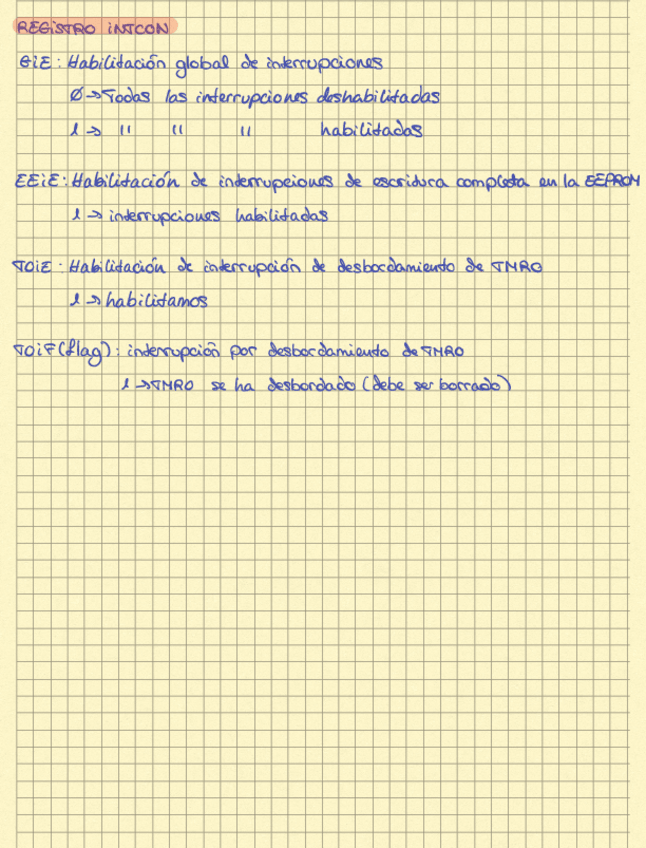 REGISTRO INTCON
GIE: Habilitación global de interrupciones
0 → Todas las interrupciones deshabilitadas
1 → " " " habilitadas
EEIE: Habilitación de interrupciones de escritura completa en la EEPROM
1 → interrupciones habilitadas
TOIE: Habilitación de interrupción de desbordamiento de TMRO
1 → habilitamos
TOIF (flag): interrupción por desbordamiento de TMRO
1 → TMRO se ha desbordado (debe ser borrado)